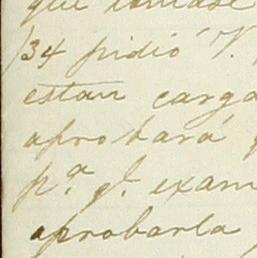 que tomase
134 pidió V.
estan carga
aprobará q
p.ª q.e exam
aprobarla y